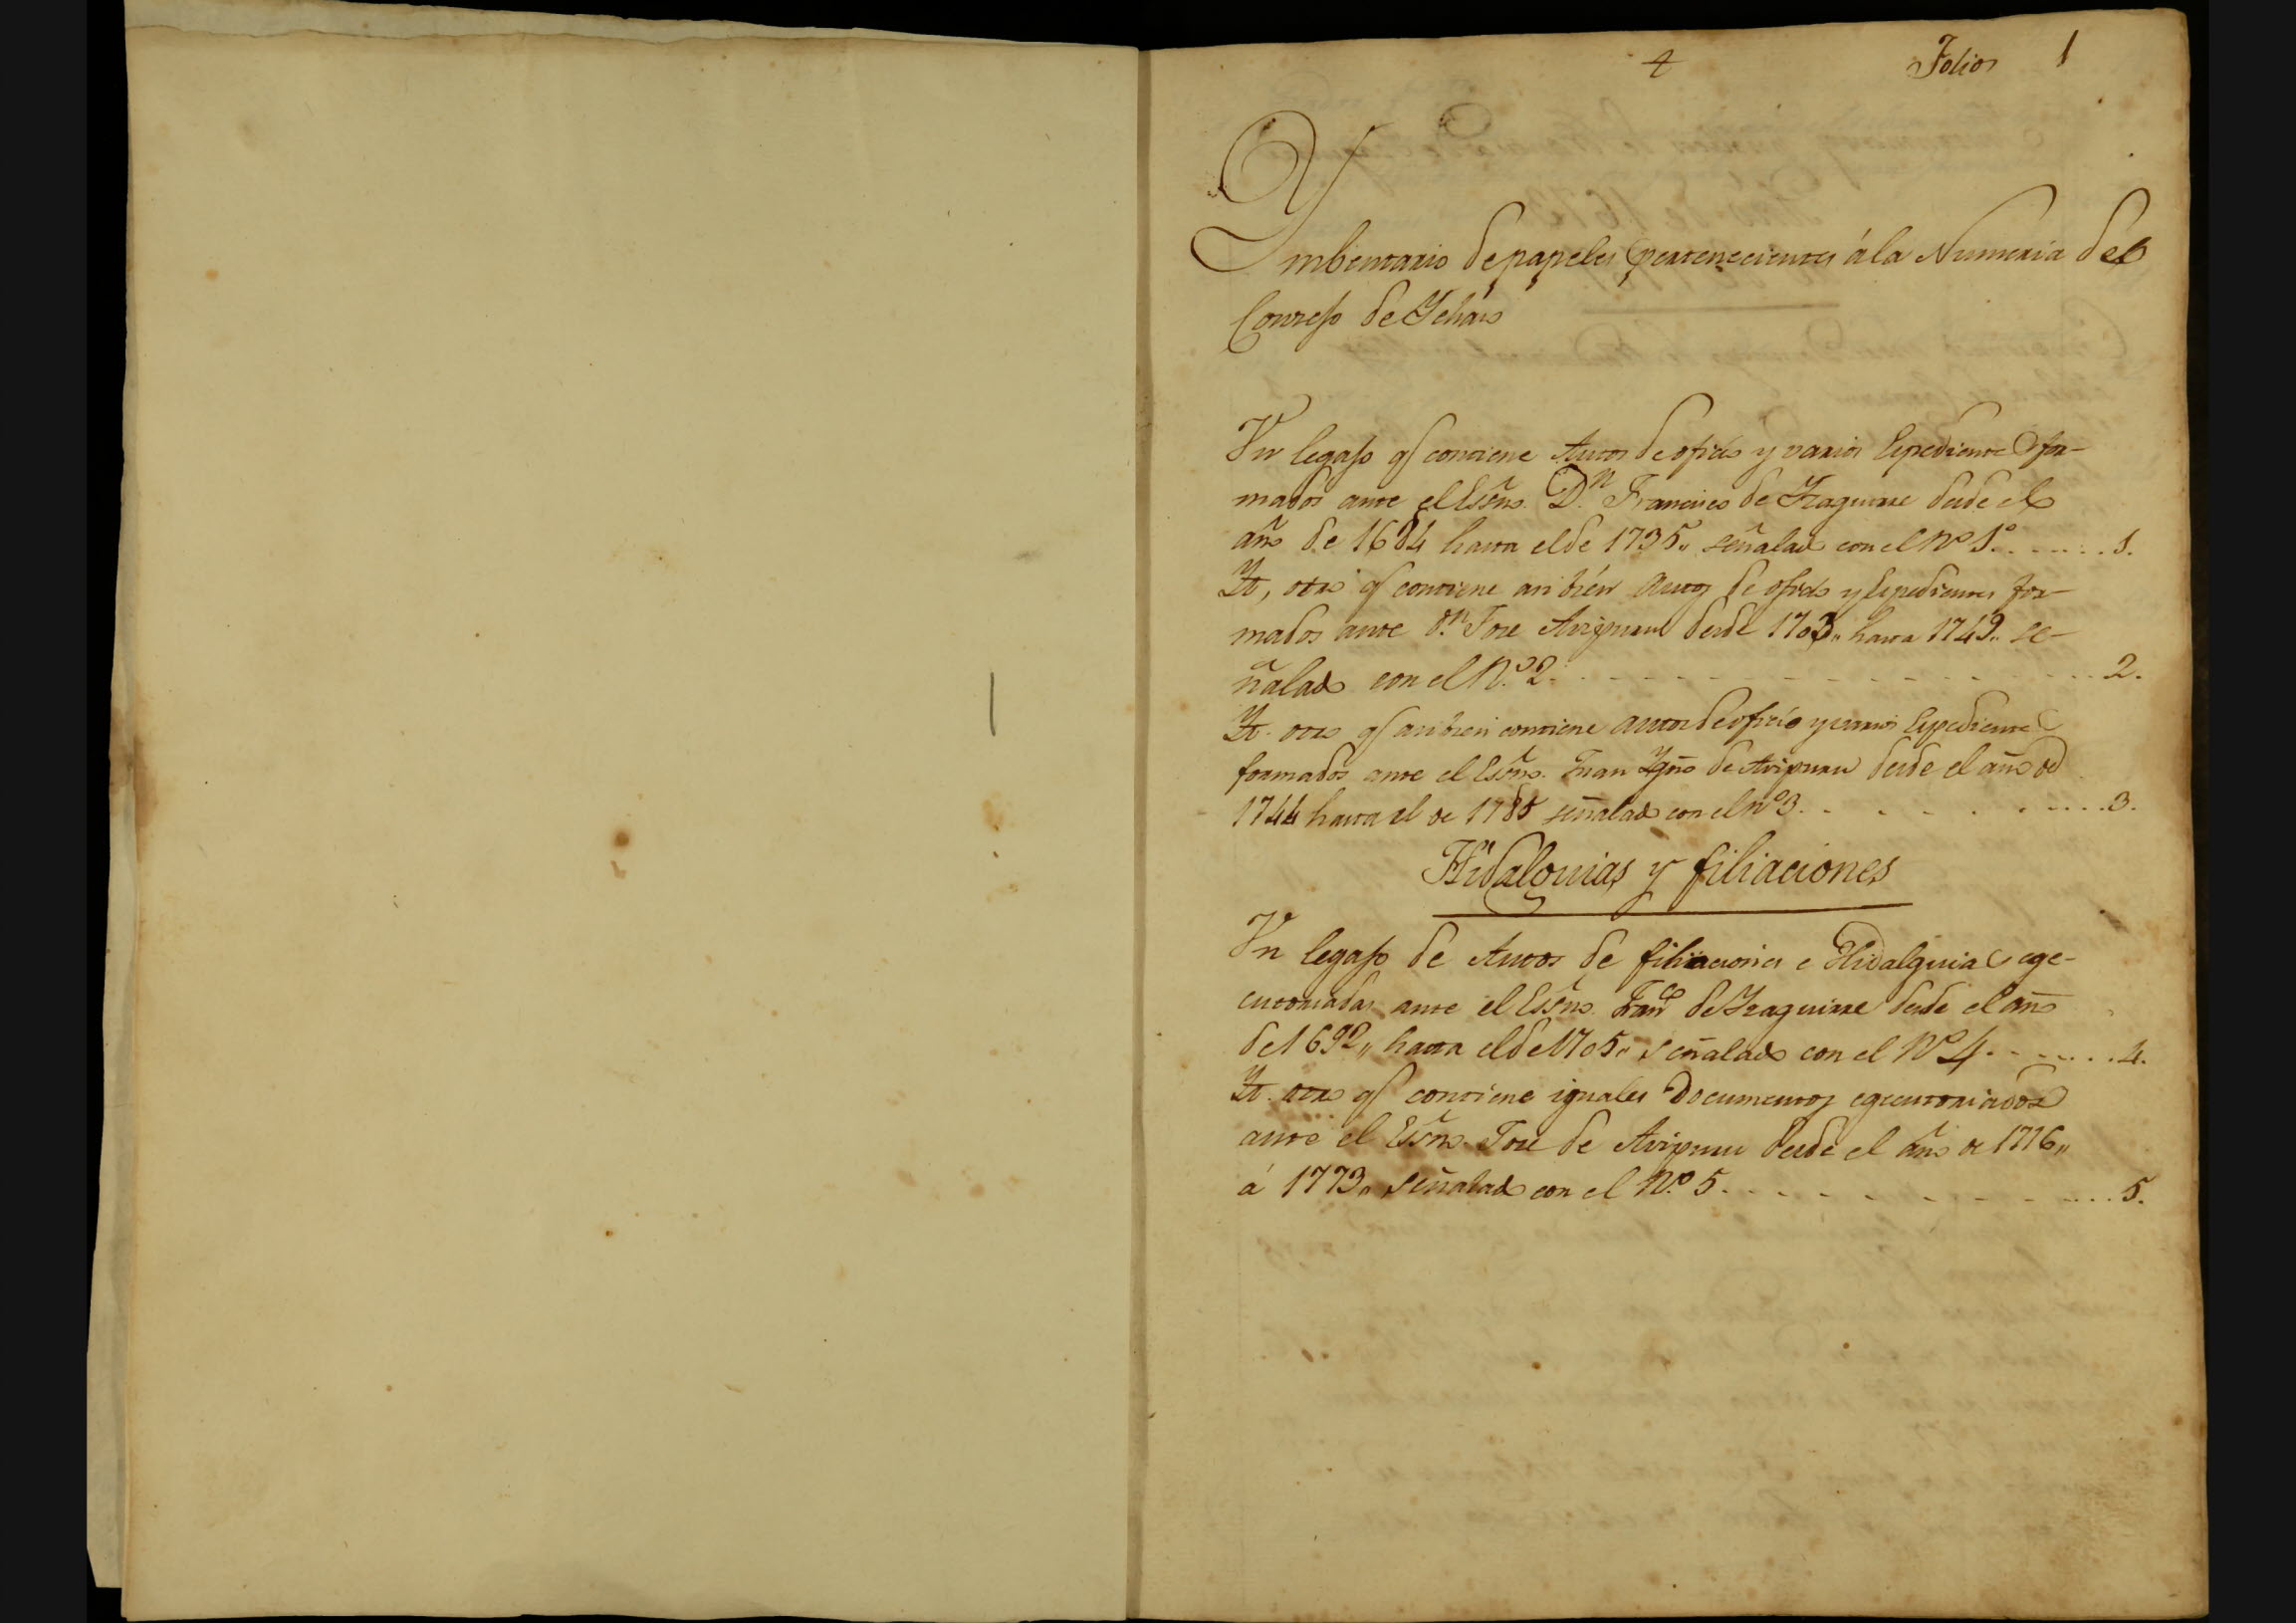 4 Folios 1
Ymbentario de papeles pertenecientes á la Numeria del
Conzejo de Ychaso
Vn legajo q͞ contiene Autos de oficio y varios Expedientes for-
mados ante el Essño. Dn. Francisco de Yzaguirre desde el
año de 1684 hasta el de 1735,, señalado con el No 1o. . . . . . . 1.
Yt, otro q͞ contiene asi bién autos de oficio y Expedientes for-
mados ante Dn. Jose Arizpuru desde 1703,, hasta 1749,, se-
ñalado con el No. 2. . . . . . . . . . . . . . . . . 2.
Yt. otro q͞ asi bien contiene autos de oficio y varios Expedientes
formados ante el Essño. Juan Ygño de Arizpuru desde el año de
1744 hasta el de 1785 señalado con el No 3. . . . . . . . . . . 3.
Hidalguias y filiaciones
Vn legajo de Autos de filiaciones e Hidalguias ege-
cutoriadas ante el Essño. Franco de Yzaguirre desde el año
de 1692,, hasta el de 1705,, señalado con el No 4. . . . . . . 4.
Yt. otro q͞ contiene iguales Documentos egecutoriados
ante el Essño. Jose de Arizpuru desde el año de 1716,,
á 1773,, señalado con el No. 5. . . . . . . . . . . . . 5.